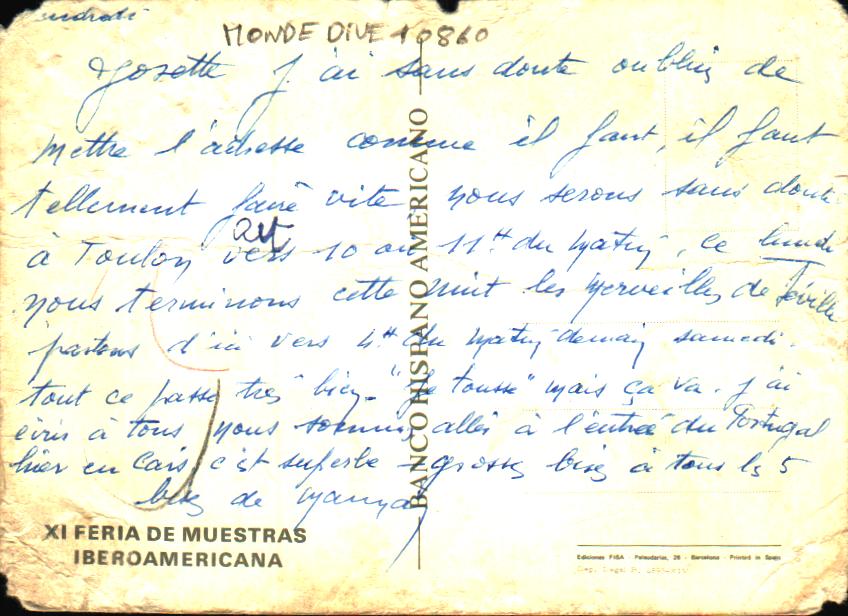 vendredi
MONDE DIVE 10860
Josette J'ai sans doute oublié de
mettre l'adresse comme il faut, il faut
tellement faire vite nous serons sans doute
à Toulon vers 10 ou 11H du matin, ce lundi
nous terminons cette nuit les merveilles de Séville
partons d'ici vers 4H du matin demain samedi.
tout ce passe très bien. "Je tousse" mais ça va. J'ai
écris à tous nous sommes allés à l'entrée du Portugal
hier en Cars, c'est superbe - grosses bises à tous les 5
bises de
BANCO HISPANO AMERICANO
XI FERIA DE MUESTRAS
IBEROAMERICANA
Ediciones FISA - Palaudarias, 26 - Barcelona - Printed in Spain